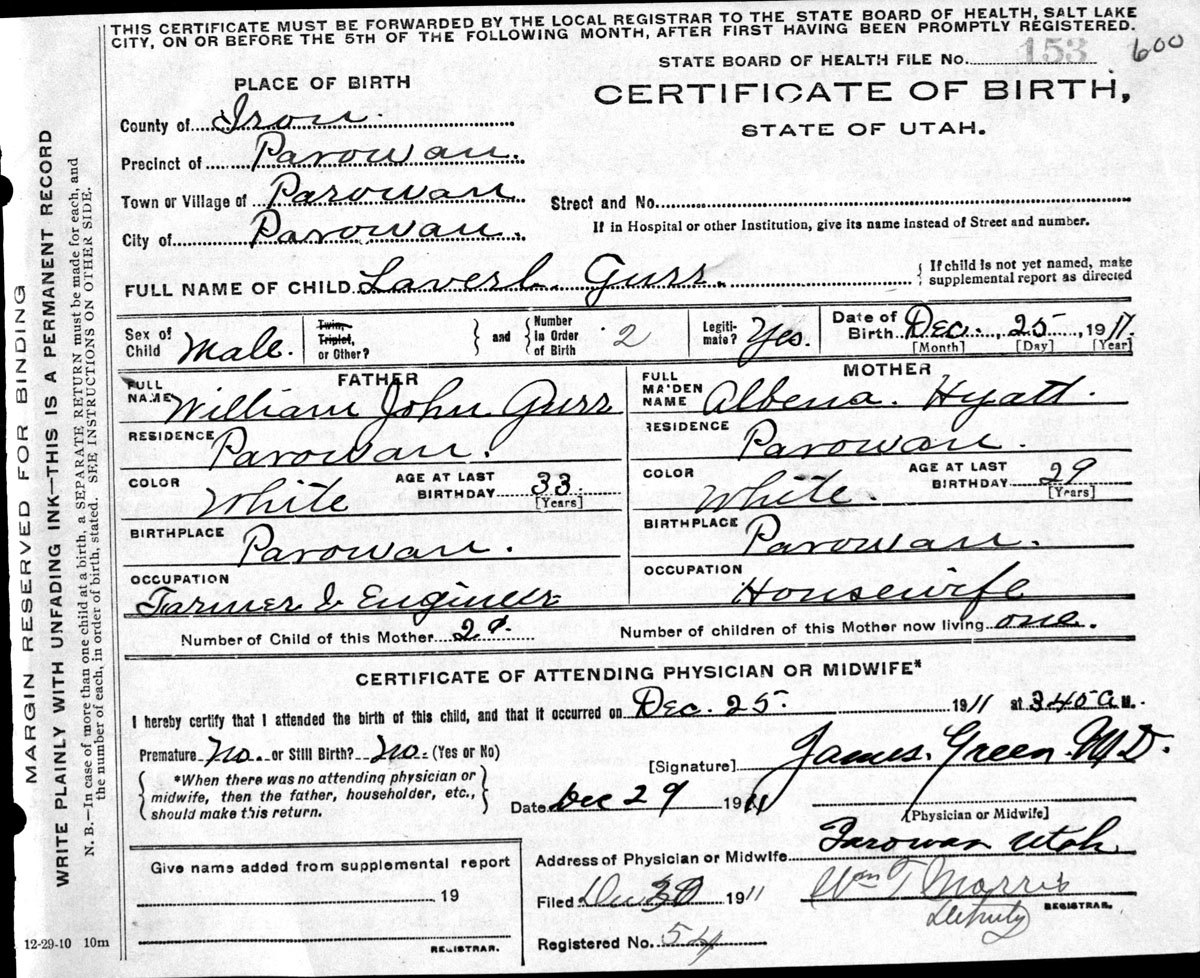 THIS CERTIFICATE MUST BE FORWARDED BY THE LOCAL REGISTRAR TO THE STATE BOARD OF HEALTH, SALT LAKE
CITY, ON OR BEFORE THE 5TH OF THE FOLLOWING MONTH, AFTER FIRST HAVING BEEN PROMPTLY REGISTERED.
STATE BOARD OF HEALTH FILE No. 153 600
PLACE OF BIRTH
CERTIFICATE OF BIRTH,
STATE OF UTAH.
County of Iron.
Precinct of Parowan.
Town or Village of Parowan
Street and No.
City of Parowan.
If in Hospital or other Institution, give its name instead of Street and number.
FULL NAME OF CHILD Laverl. Gurr.
{ If child is not yet named, make
supplemental report as directed
Sex of Child Male.
Twin, Triplet, or Other?
} and { Number in Order of Birth 2
Legiti-mate? Yes.
Date of Birth Dec., 25, 1911.
[Month] [Day] [Year]
FATHER
MOTHER
FULL NAME William John Gurr
FULL MAIDEN NAME Albena. Hyatt.
RESIDENCE Parowan.
RESIDENCE Parowan.
COLOR White
AGE AT LAST BIRTHDAY 33.
[Years]
COLOR White.
AGE AT LAST BIRTHDAY 29
[Years]
BIRTHPLACE Parowan.
BIRTHPLACE Parowan.
OCCUPATION Farmer & Engineer
OCCUPATION Housewife
Number of Child of this Mother 2d.
Number of children of this Mother now living one.
CERTIFICATE OF ATTENDING PHYSICIAN OR MIDWIFE*
I hereby certify that I attended the birth of this child, and that it occurred on Dec. 25 1911 at 340 a M.
Premature No. or Still Birth? No. (Yes or No)
[Signature] James. Green. M D.
{ *When there was no attending physician or
midwife, then the father, householder, etc.,
should make this return. }
Date Dec 29 1911
[Physician or Midwife]
Give name added from supplemental report
19
REGISTRAR.
Address of Physician or Midwife Parowan Utah
Filed Dec 30 1911
Wm T Morris
Deputy REGISTRAR.
Registered No. 54
12-29-10 10m
MARGIN RESERVED FOR BINDING
WRITE PLAINLY WITH UNFADING INK—THIS IS A PERMANENT RECORD
N. B.—In case of more than one child at a birth, a SEPARATE RETURN must be made for each, and
the number of each, in order of birth, stated. SEE INSTRUCTIONS ON OTHER SIDE.